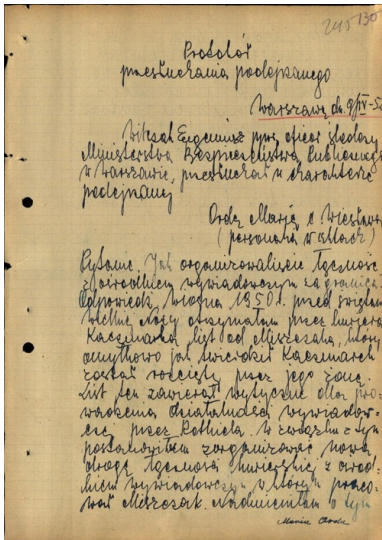 245 130
Protokół
przesłuchania podejrzanego
Warszawa dn. 9/IV-5
Witczak Eugeniusz ppor. oficer śledczy
Ministerstwa Bezpieczeństwa Publicznego
w Warszawie, przesłuchał w charakterze
podejrzanej
Ordę Marię c Wiesława
(personalia w aktach)
Pytanie: Jak organizowaliście łączność
z ośrodkiem wywiadowczym zagranicą
Odpowiedź: wiosną 1950 r. przed świętami
Wielkiej Nocy otrzymałam przez kuriera
Kaczmarka list od Mieszczaka, który
omyłkowo jak twierdził Kaczmarek
został rozcięty przez jego żonę.
List ten zawierał wytyczne dla pro-
wadzenia działalności wywiadow-
czej przez W związku z tym
postanowiłam zorganizować nową
drogę łączności kurierskiej z ośrod-
kiem wywiadowczym w którym praco-
wał Mieszczak. Nadmieniłam o tym
Maria Orda